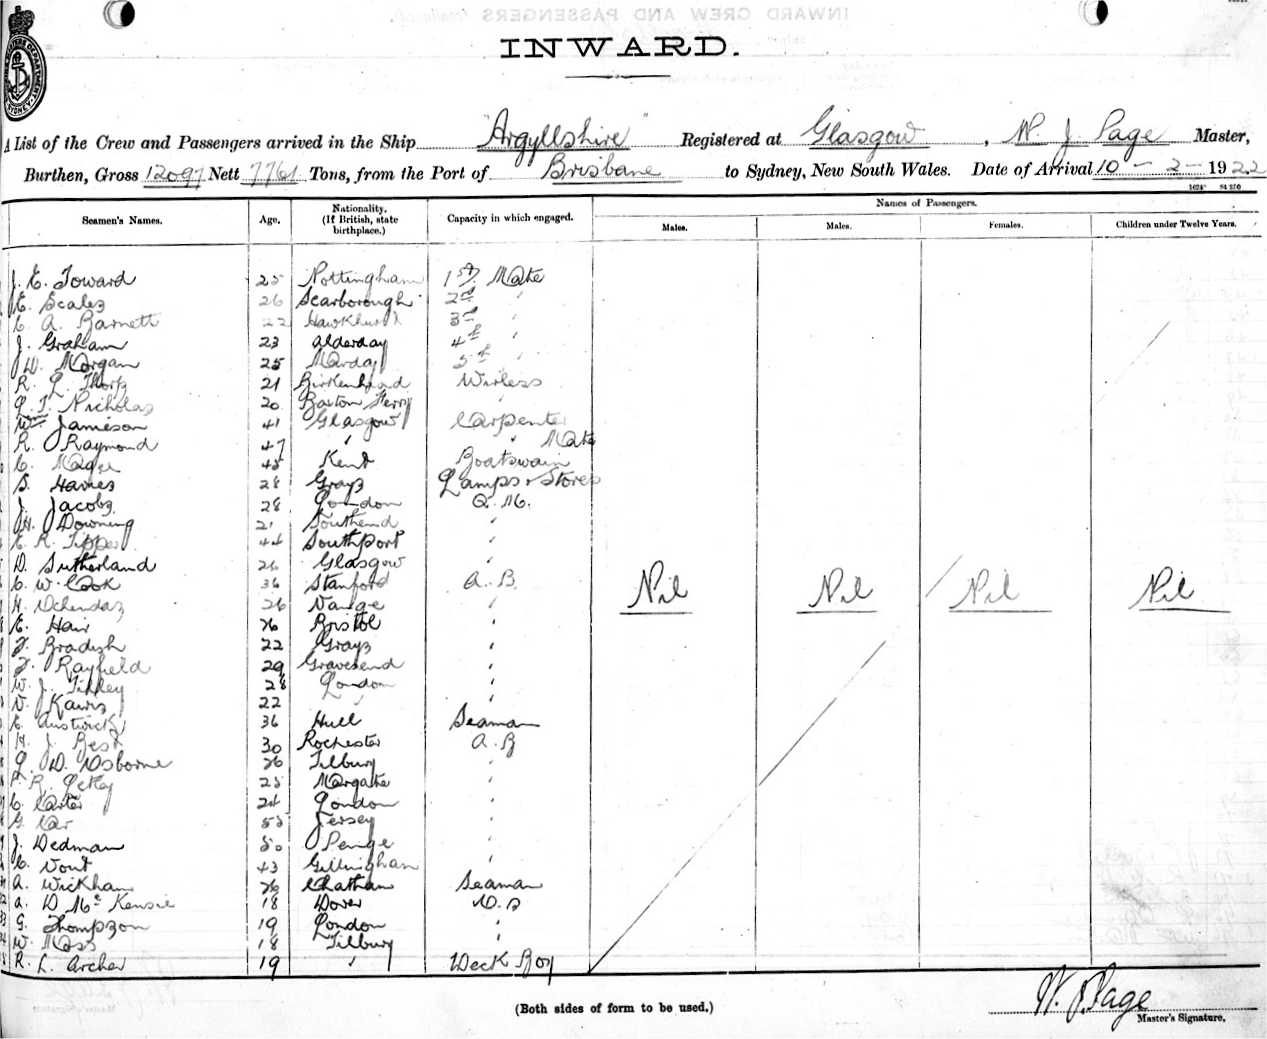 INWARD.
A List of the Crew and Passengers arrived in the Ship "Argyllshire" Registered at Glasgow, W. J. Page Master,
Burthen, Gross 12097 Nett 7761 Tons, from the Port of Brisbane to Sydney, New South Wales. Date of Arrival 10 - 2 - 1922
Seamen's Names. Age. Nationality. (If British, state birthplace.) Capacity in which engaged. Names of Passengers.
Males. Males. Females. Children under Twelve Years.
J. E. Toward 25 Nottingham 1st Mate
E. Scales 26 Scarborough 2nd "
C. A. Barnett 22 Hawkhurst 3rd "
J. Graham 23 Alderday 4th "
W. Morgan 25 5th "
R. L. 21 Birkenhead Wirless
L. T. Nicholas 20 Barton Ferry "
Wm Jamieson 41 Glasgow Carpenter
R. Raymond 47 " " Mate
C. Magee 45 Kent Boatswain
S. Haines 28 Grays Lamps & Stores
J. Jacobs 28 London Q. M.
H. Downing 21 Southend "
E. R. Tipper 44 Southport "
D. Sutherland 26 Glasgow "
C. W. Cook 36 Stanford A. B.
H. 26 Vange "
E. Hair 26 Bristol "
F. Bradish 22 Grays "
F. Rayfield 29 Gravesend "
W. J. Tilley 28 London "
22 " "
E. Austwick 36 Hull Seaman
H. J. Best 30 Rochester A. B
L. W. Osborne 26 Tilbury "
R. 25 Margate "
C. Carter 24 London "
G. Car 55 Jersey "
J. Dedman 50 Penge "
C. Vont 43 Gillingham "
A. Wickham 26 Chatham Seaman
A. D McKensie 18 Dover O. S
G. Thompson 19 London "
W. Moss 18 Tilbury "
R. L. Archer 19 " Deck Boy
Nil Nil Nil Nil
(Both sides of form to be used.)
W. J. Page
Master's Signature.